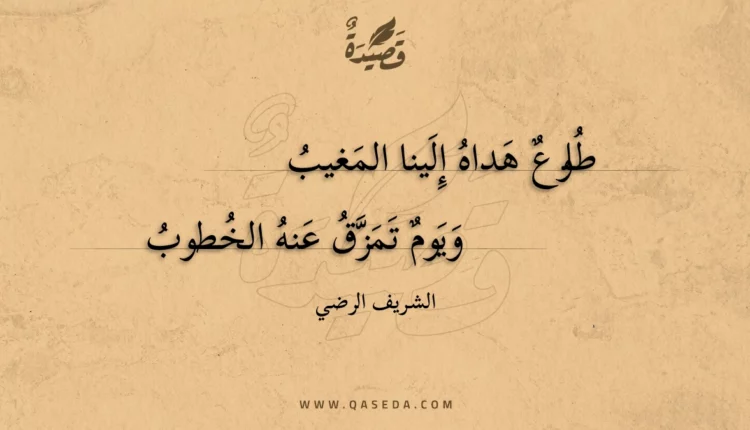 قَصِيدَةٌ
طُلوعٌ هَداهُ إِلَينا المَغيبُ
وَيَومٌ تَمَزَّقُ عَنهُ الخُطوبُ
الشريف الرضي
WWW.QASEDA.COM